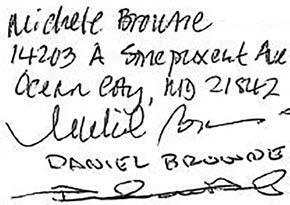 Michele Browne
14203 A Sinepuxent Ave
Ocean City, MD 21842
DANIEL BROWNE